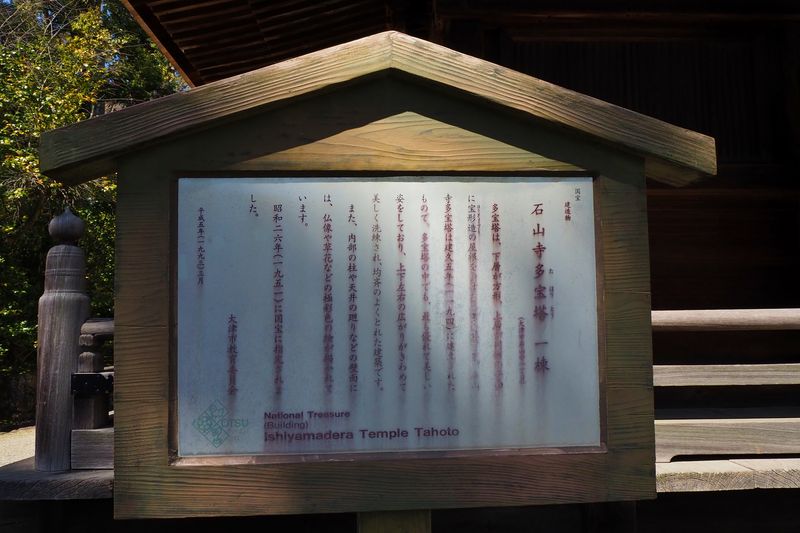 国宝 建造物
石山寺多宝塔 一棟
多宝塔は、下層が方形、上層が
に宝形造の屋根を
寺多宝塔は建久五年(一一九四)に建てられた
もので、多宝塔の中でも、最も優れて美しい
姿をしており、上下左右の広がりがきわめて
美しく洗練され、均斉のよくとれた建築です。
また、内部の柱や天井の廻りなどの壁面に
は、仏像や草花などの極彩色の絵が描かれて
います。
昭和二六年(一九五一)に国宝に指定されま
した。
大津市教育委員会
平成五年(一九九三)三月
OTSU
National Treasure
(Building)
Ishiyamadera Temple Tahoto